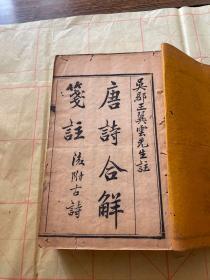 吳郡王翼雲先生註
唐詩合解
箋註 後附古詩